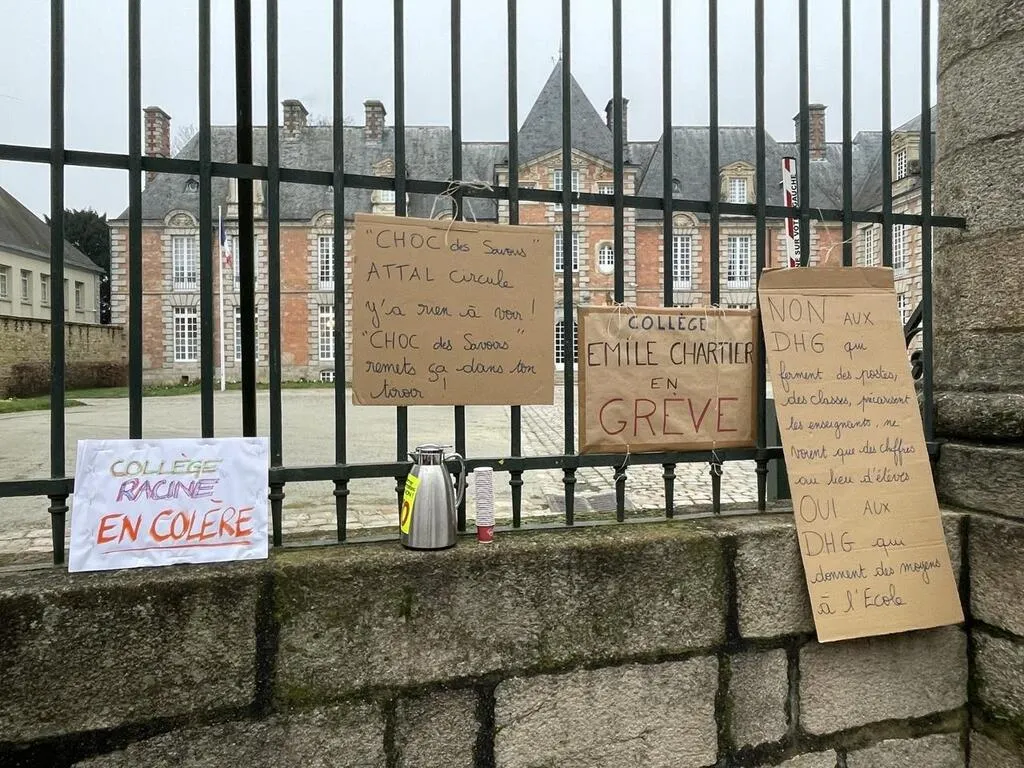 "CHOC des Savoirs"
ATTAL circule
y'a rien à voir !
"CHOC des Savoirs"
remets ça dans ton
tiroir !
COLLÈGE
EMILE CHARTIER
EN
GRÈVE
NON AUX
DHG qui
ferment des postes,
des classes, précarisent
les enseignants, ne
voient que des chiffres
au lieu d'élèves
OUI AUX
DHG qui
donnent des moyens
à l'Ecole
COLLÈGE
RACINE
EN COLÈRE